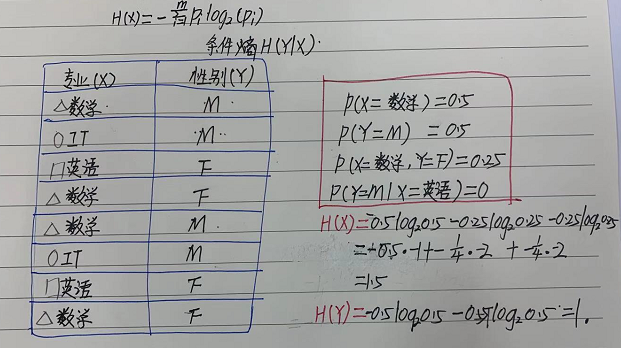 H(X)=-∑ᵐᵢ₌₁ Pᵢ log₂(Pᵢ)
条件熵 H(Y|X).
专业(X) 性别(Y)
△数学 M
○IT M
□英语 F
△数学 F
△数学 M
○IT M
□英语 F
△数学 F
P(X=数学)=0.5
P(Y=M) =0.5
P(X=数学,Y=F)=0.25
P(Y=M|X=英语)=0
H(X)=-0.5log₂0.5-0.25log₂0.25-0.25log₂0.25
=-0.5·-1+-¼·-2 +-¼·-2
=1.5
H(Y)=-0.5log₂0.5-0.5log₂0.5=1.